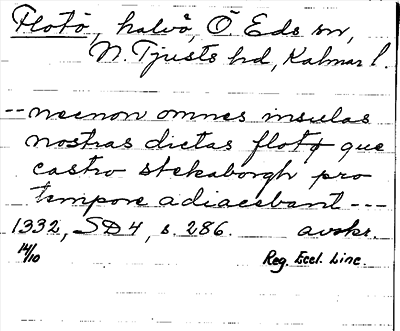 Flotö, halvö, Ö. Eds sn,
N. Tjusts hd, Kalmar l.
-- necnon omnes insulas
nostras dictas flotø que
castro stekaborgh pro
tempore adiacebant ---
1332, SD 4, s. 286. avskr.
14/10 Reg. Eccl. Linc.